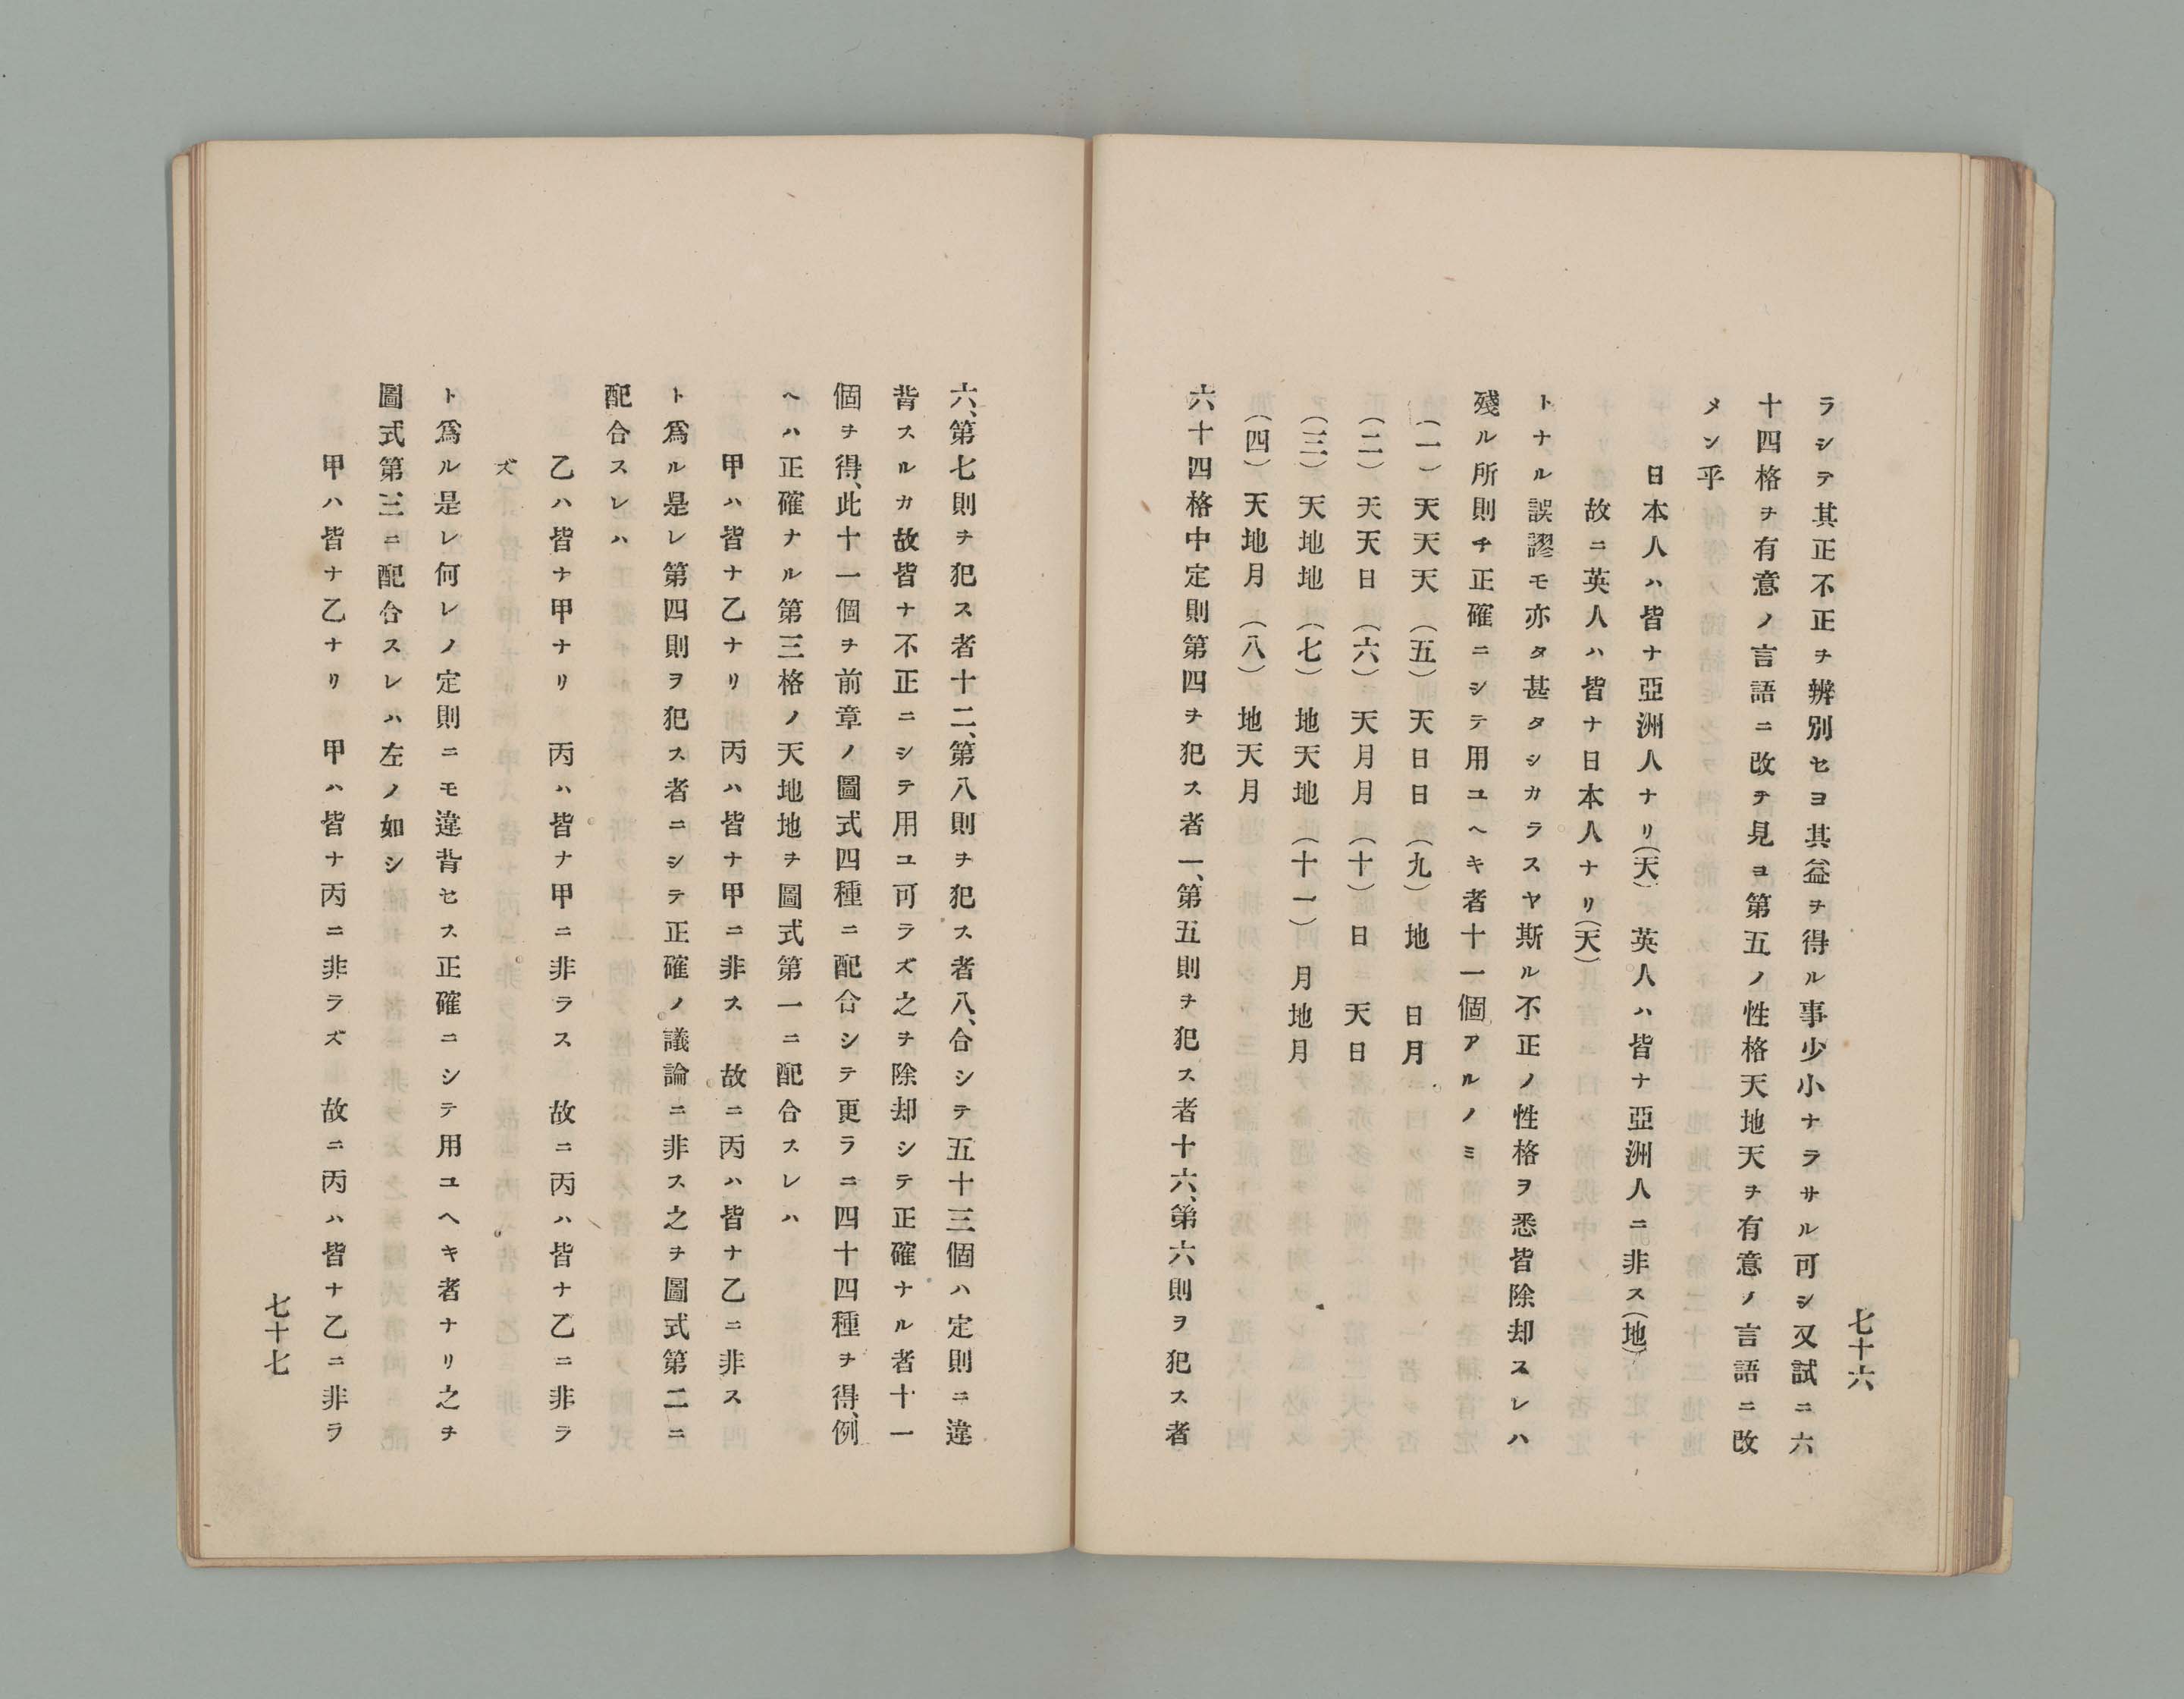 七十六
ラシテ其正不正ヲ辨別セヨ其益ヲ得ル事少小ナラサル可シ又試ニ六
十四格ヲ有意ノ言語ニ改テ見ヨ第五ノ性格天地天ヲ有意ノ言語ニ改
メン乎
日本人ハ皆ナ亞洲人ナリ(天) 英人ハ皆ナ亞洲人ニ非ス(地)
故ニ英人ハ皆ナ日本人ナリ(天)
トナル誤謬モ亦タ甚タシカラスヤ斯ル不正ノ性格ヲ悉皆除却スレハ
殘ル所則チ正確ニシテ用ユヘキ者十一個アルノミ
(一) 天天天 (五) 天日日 (九) 地日月
(二) 天天日 (六) 天月月 (十) 日天日
(三) 天地地 (七) 地天地 (十一) 月地月
(四) 天地月 (八) 地天月
六十四格中定則第四ヲ犯ス者一、第五則ヲ犯ス者十六、第六則ヲ犯ス者
六、第七則ヲ犯ス者十二、第八則ヲ犯ス者八、合シテ五十三個ハ定則ニ違
背スルカ故皆ナ不正ニシテ用ユ可ラズ之ヲ除却シテ正確ナル者十一
個ヲ得、此十一個ヲ前章ノ圖式四種ニ配合シテ更ラニ四十四種ヲ得、例
ヘハ正確ナル第三格ノ天地地ヲ圖式第一ニ配合スレハ
甲ハ皆ナ乙ナリ 丙ハ皆ナ甲ニ非ス 故ニ丙ハ皆ナ乙ニ非ス
ト爲ル是レ第四則ヲ犯ス者ニシテ正確ノ議論ニ非ス之ヲ圖式第二ニ
配合スレハ
乙ハ皆ナ甲ナリ 丙ハ皆ナ甲ニ非ラス 故ニ丙ハ皆ナ乙ニ非ラ
ズ
ト爲ル是レ何レノ定則ニモ違背セス正確ニシテ用ユヘキ者ナリ之ヲ
圖式第三ニ配合スレハ左ノ如シ
甲ハ皆ナ乙ナリ 甲ハ皆ナ丙ニ非ラズ 故ニ丙ハ皆ナ乙ニ非ラ
七十七